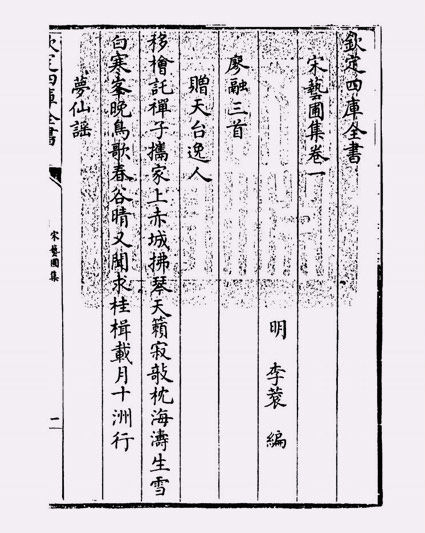 欽定四庫全書
宋藝圃集卷一
明 李蓘 編
廖融三首
贈天台逸人
移檜託禪子攜家上赤城拂琴天籟寂敧枕海濤生雪
白寒峯晚鳥歌春谷晴又聞求桂楫載月十洲行
夢仙謡
欽定四庫全書
宋藝圃集